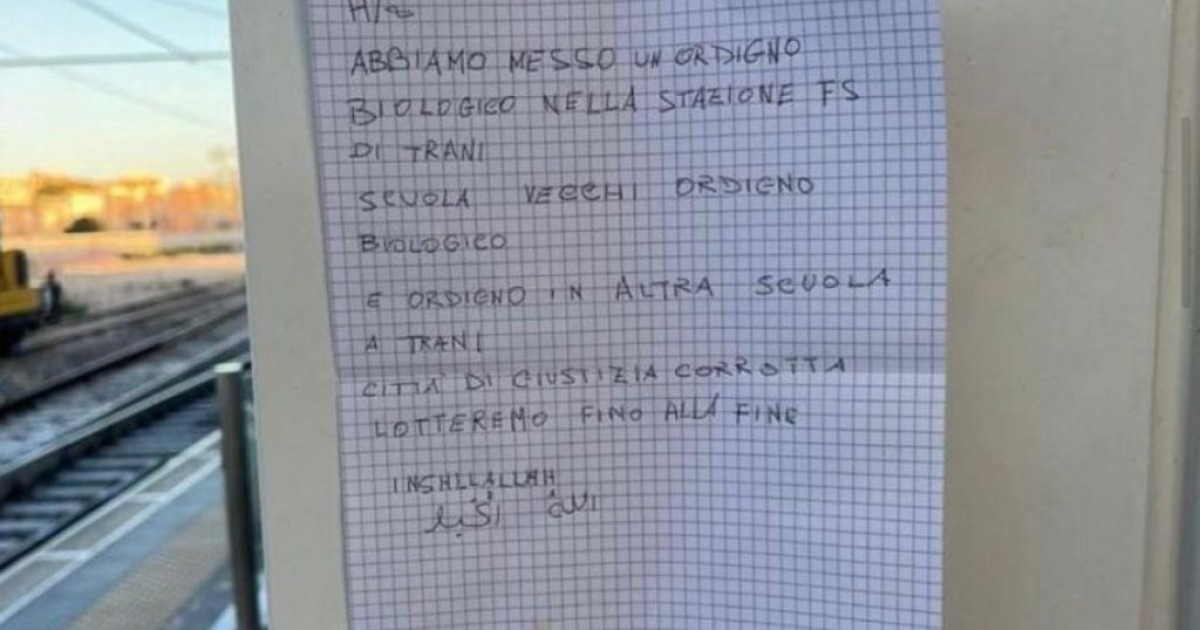 ABBIAMO MESSO UN ORDIGNO
BIOLOGICO NELLA STAZIONE FS
DI TRANI
SCUOLA VECCHI ORDIGNO
BIOLOGICO
E ORDIGNO IN ALTRA SCUOLA
A TRANI
CITTÀ DI GIUSTIZIA CORROTTA
LOTTEREMO FINO ALLA FINE
INSHLLALLAH
الله اكبر